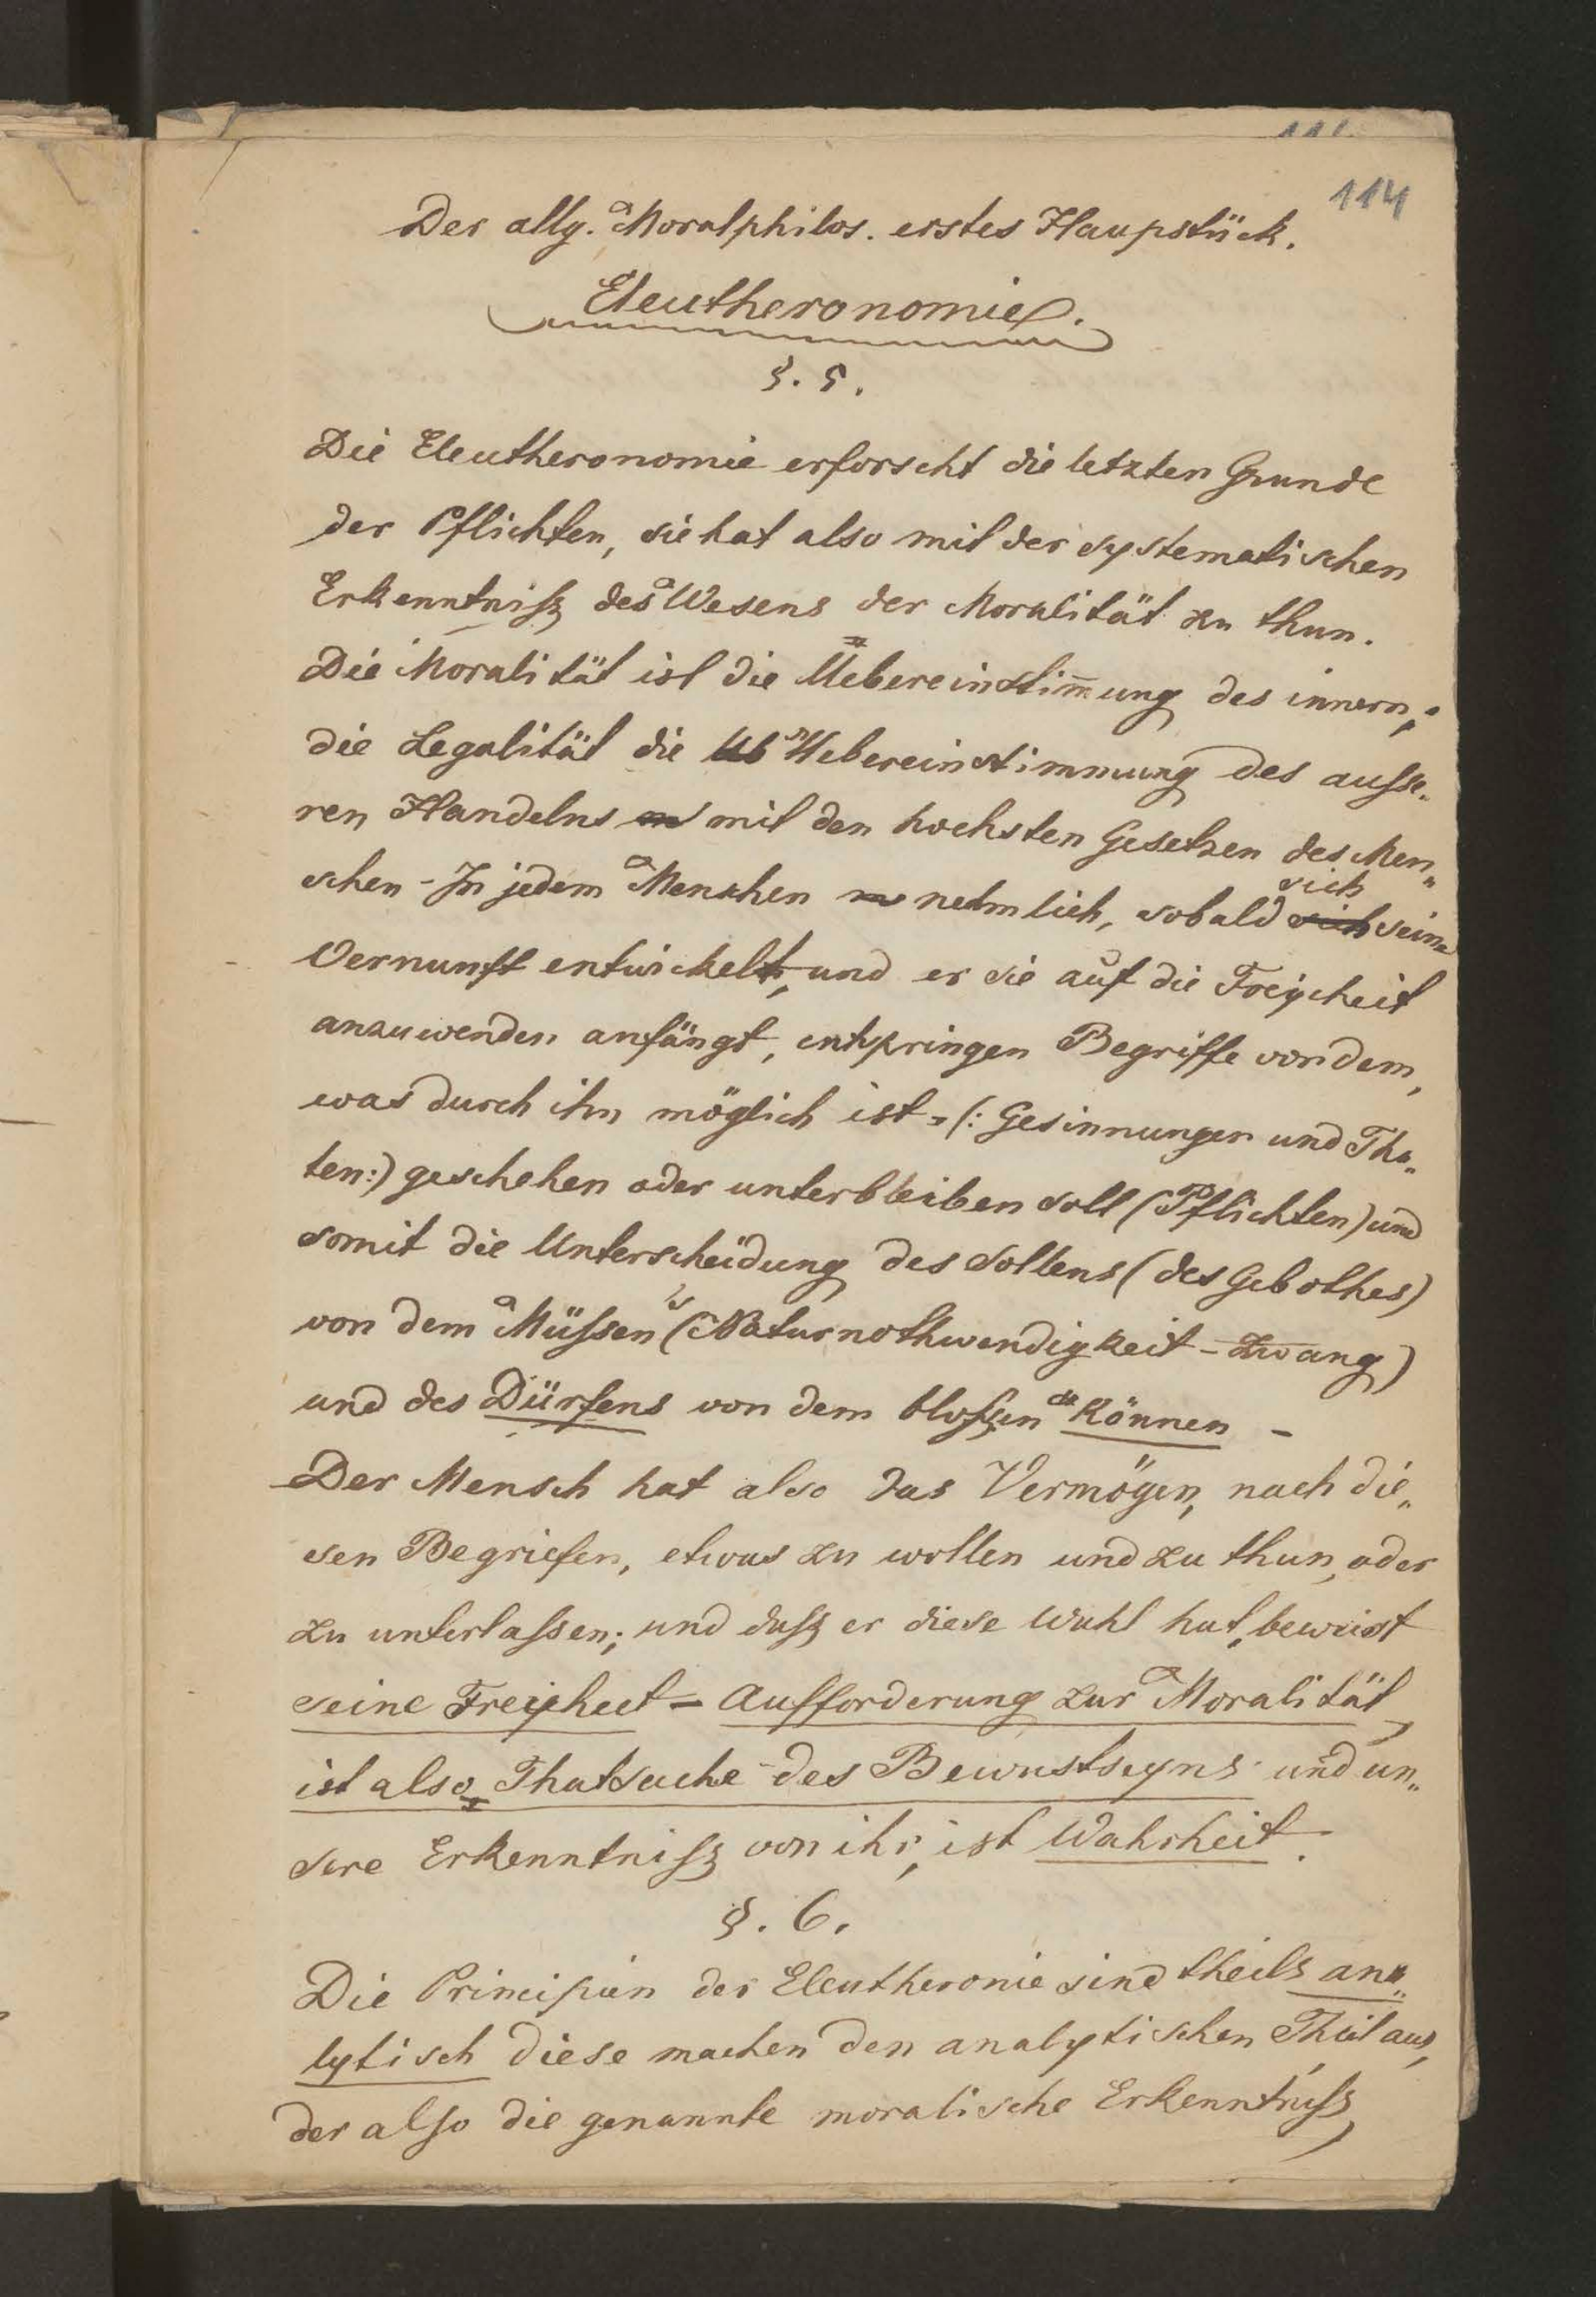 114
Der allg. Moralphilos. erstes Haupstück.
Eleutheronomie.
§. 5.
Die Eleutheronomie erforscht die letzten Grunde
der Pflichten, sie hat also mit der systematischen
Erkenntniß des Wesens der Moralität zu thun.
Die Moralität ist die Uebereinstim̅ung des innern,
die Legalität die Ub Uebereinstimmung des ausse-
ren Handelns mit den hochsten Gesetzen des Men„
schen - In jedem Menschen nehmlich, sobald sich seine
Vernunft entwickelt, und er sie auf die Freyheit
anzuwenden anfängt, entspringen Begriffe von dem,
was durch ihn möglich ist - (: Gesinnungen und Tha„
ten:) geschehen oder unterbleiben soll (Pflichten) und
somit die Unterscheidung des Sollens (des Gebothes)
von dem Müssen (Naturnothwendigkeit - Zwang)
und des Dürfens von dem bloßen Können -
Der Mensch hat also das Vermögen, nach die„
sen Begriefen, etwas zu wollen und zu thun, oder
zu unterlassen; und daß er diese Wahl hat, beweist
seine Freyheit - Aufforderung zur Moralität,
ist also Thatsache des Bewustseyns und un„
sere Erkenntniß von ihr, ist Wahrheit.
§. 6.
Die Principien der Eleutheronie sind theils ana„
lytisch diese machen den analytischen Theil aus,
der also die genannte moralische Erkenntniß